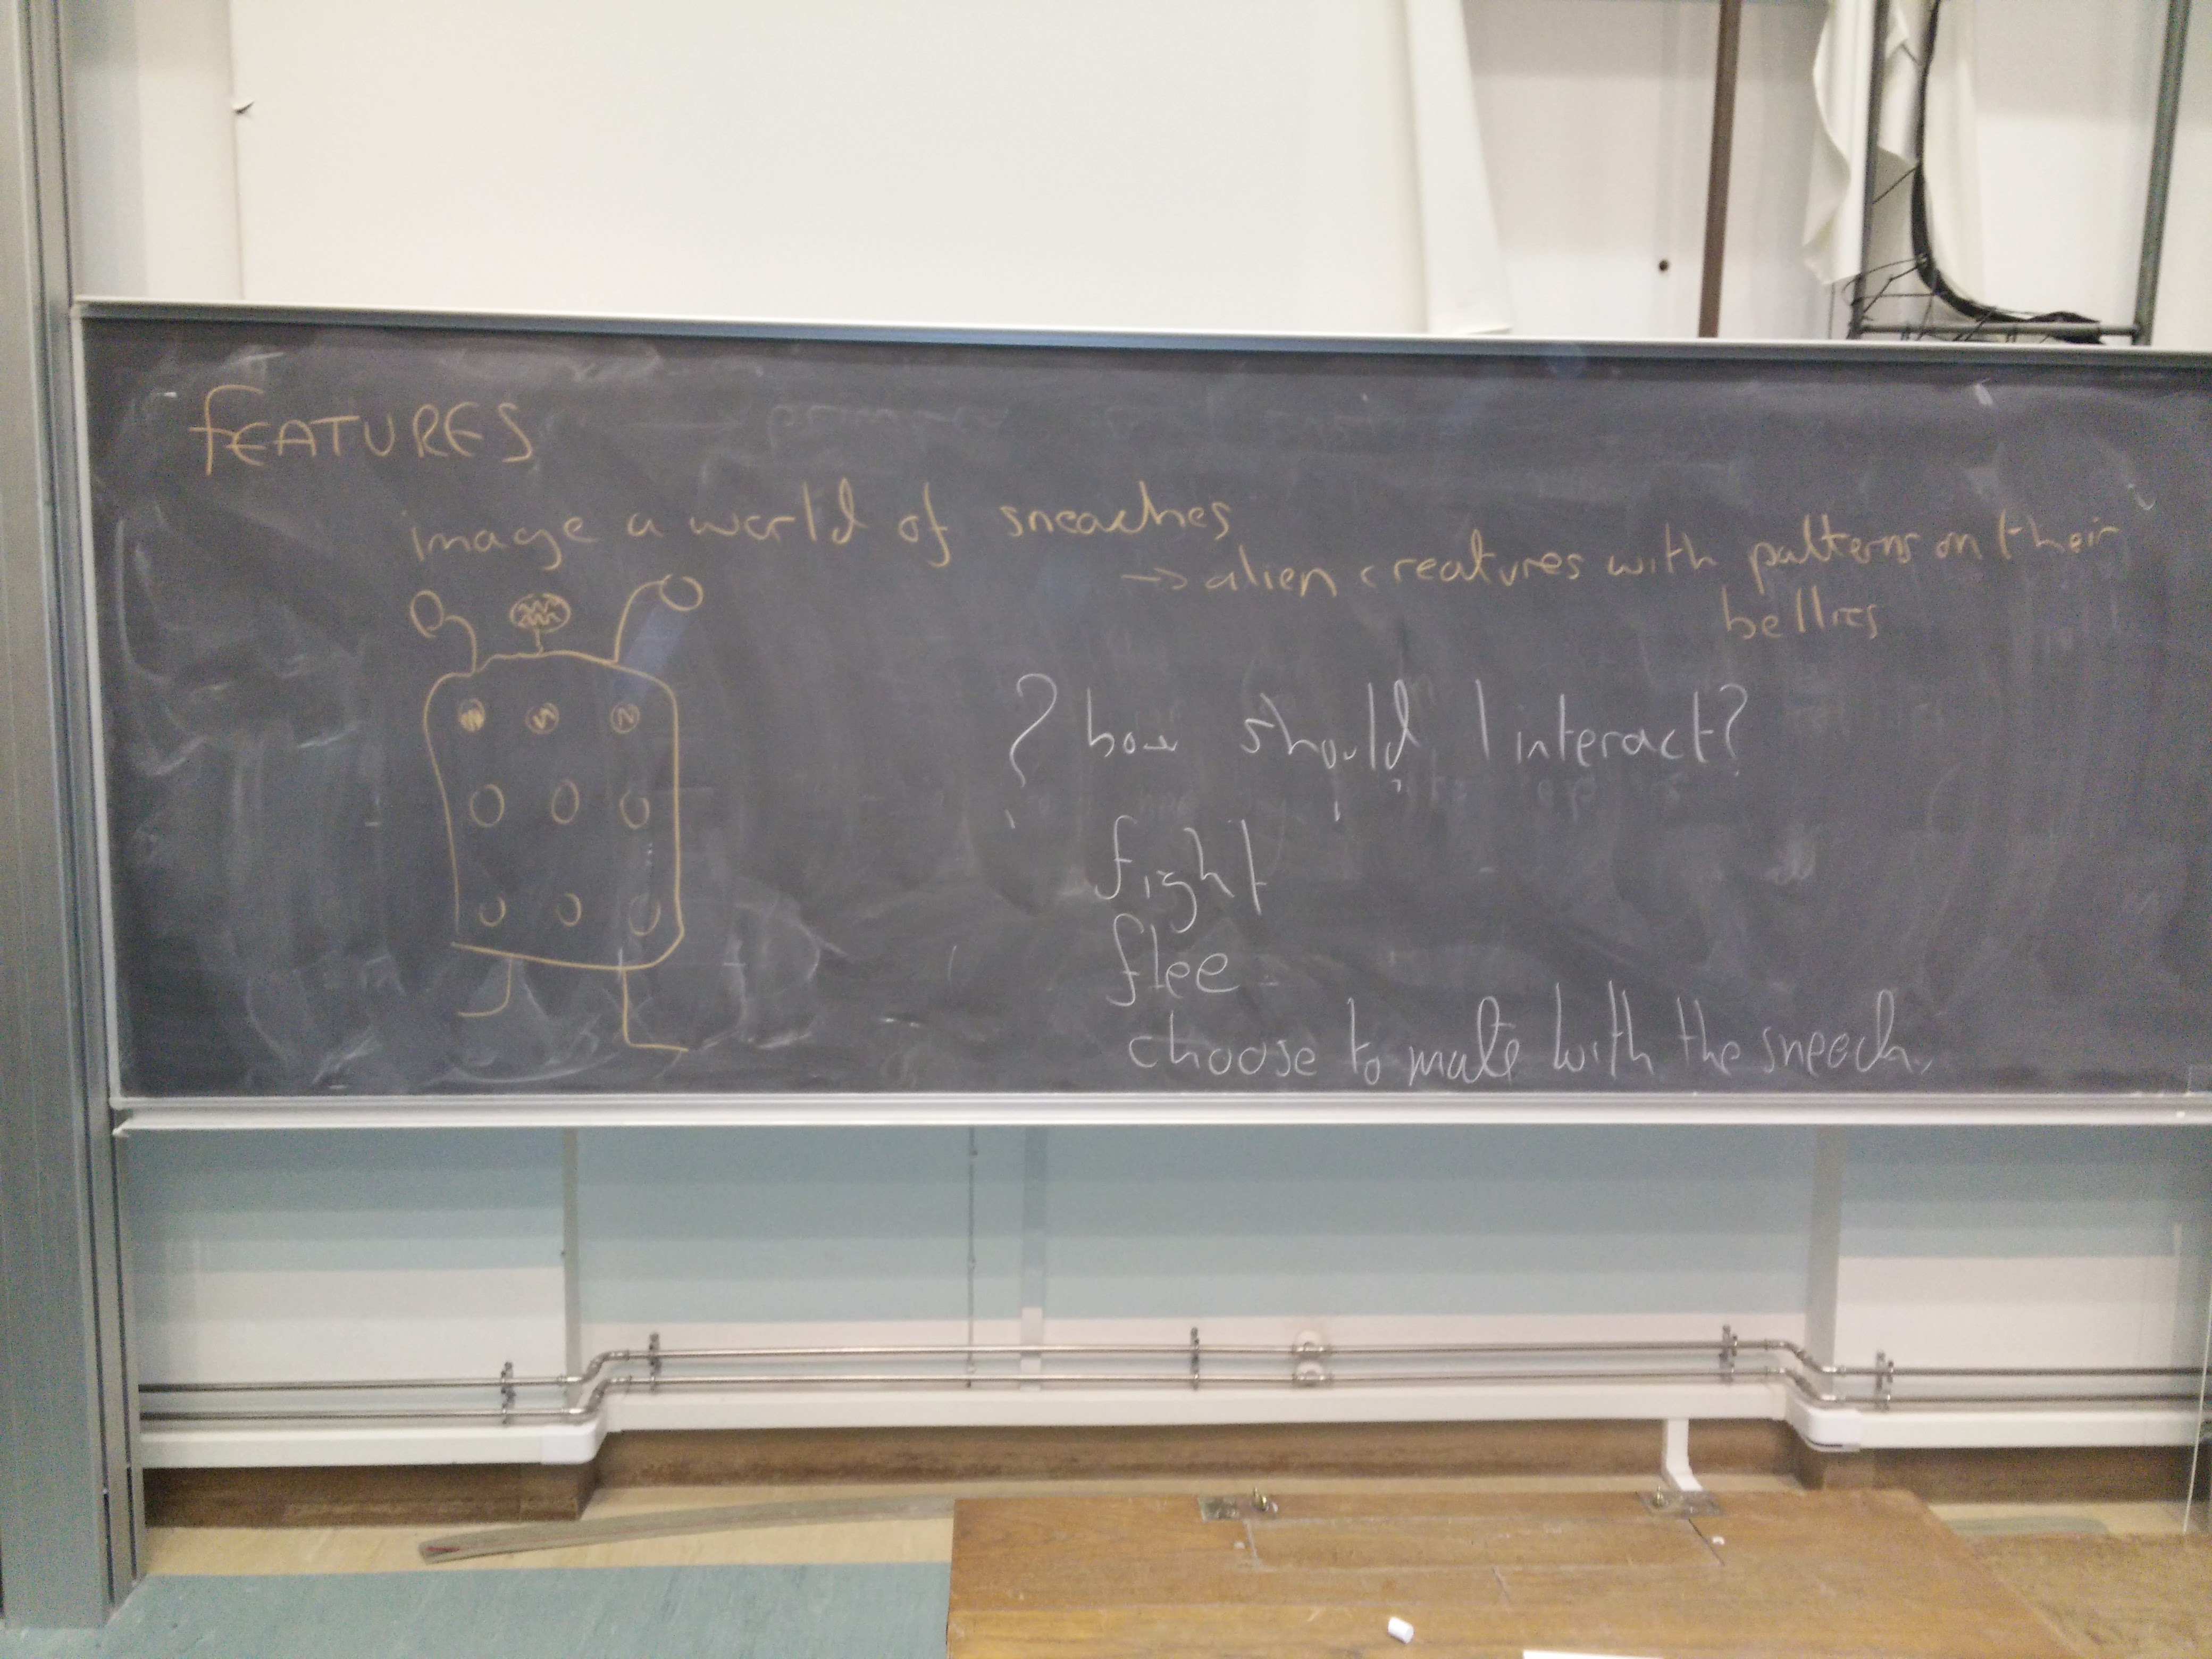 FEATURES
image a world of sneaches
→ alien creatures with patterns on their
bellies
? how should I interact?
fight
flee
choose to mate with the sneech.